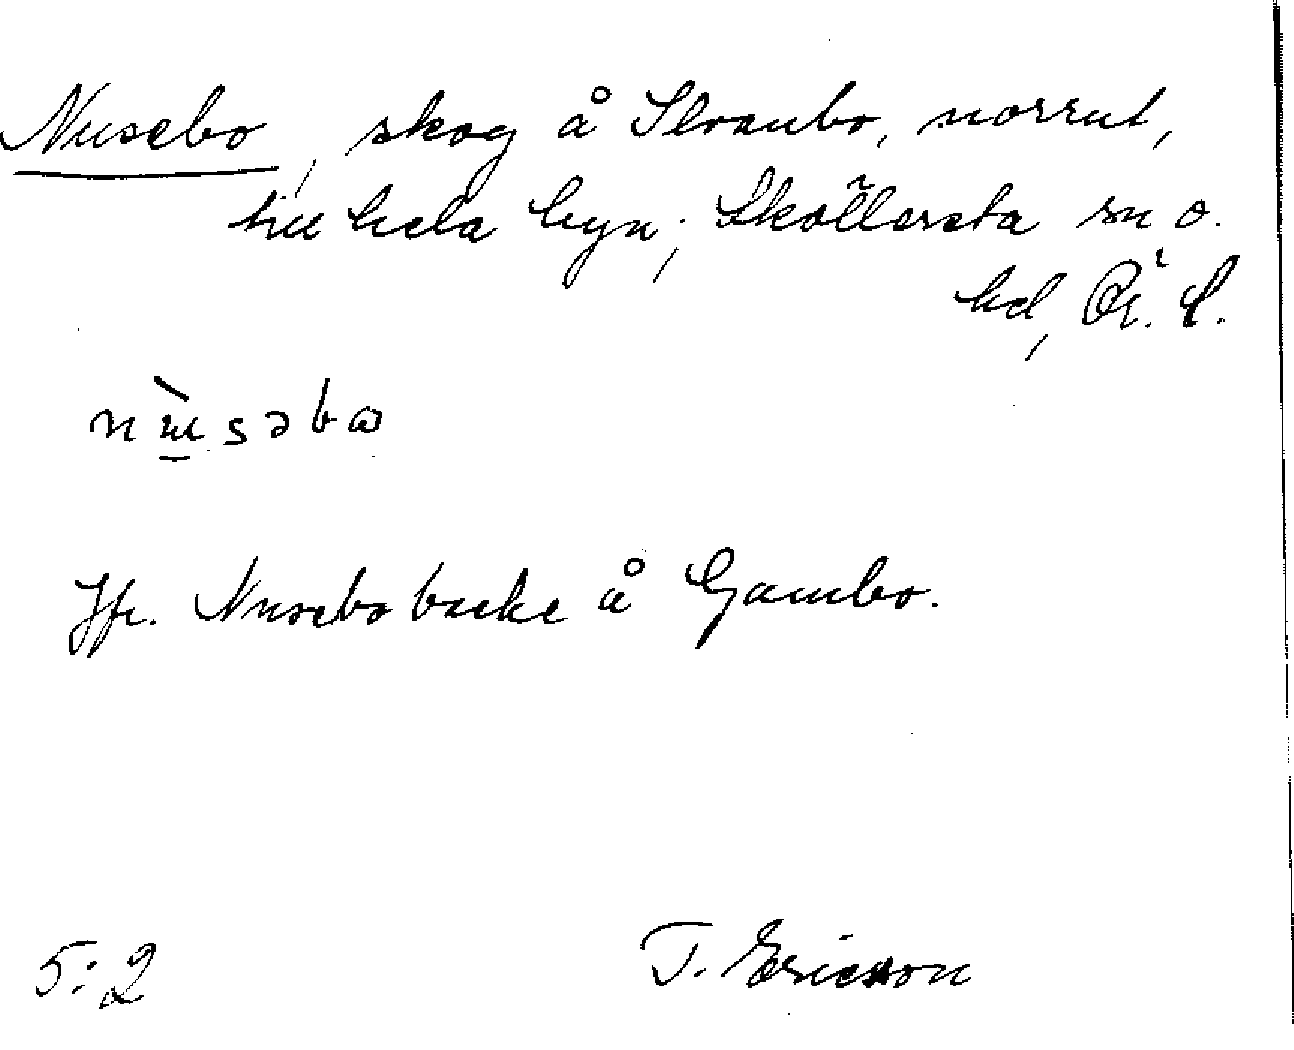 Nusebo, skog å Slvanbo, norrut,
till hela byn; Sköllersta sn o.
hd, Ör. l.
nu̶səbω
Jfr. Nusebobacke å Gambo.
5:2 T. Ericson